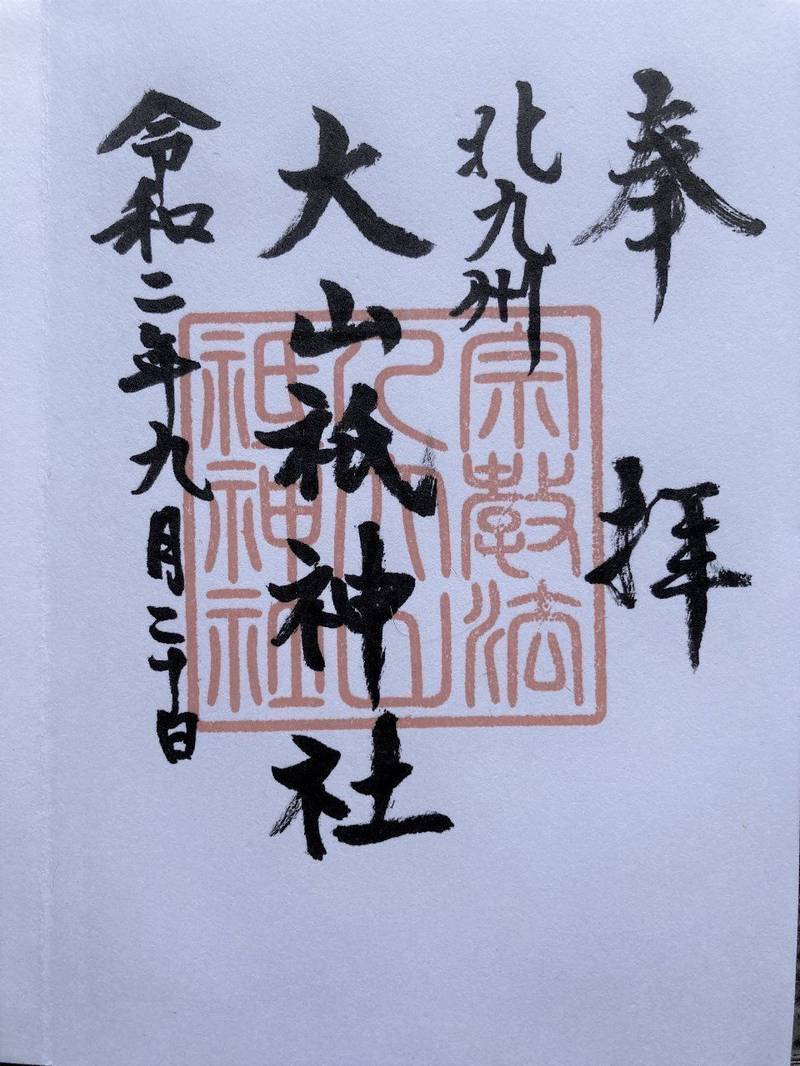 奉拝
北九州
大山祇神社
令和二年九月二十日
宗教法
人大山
祇神社